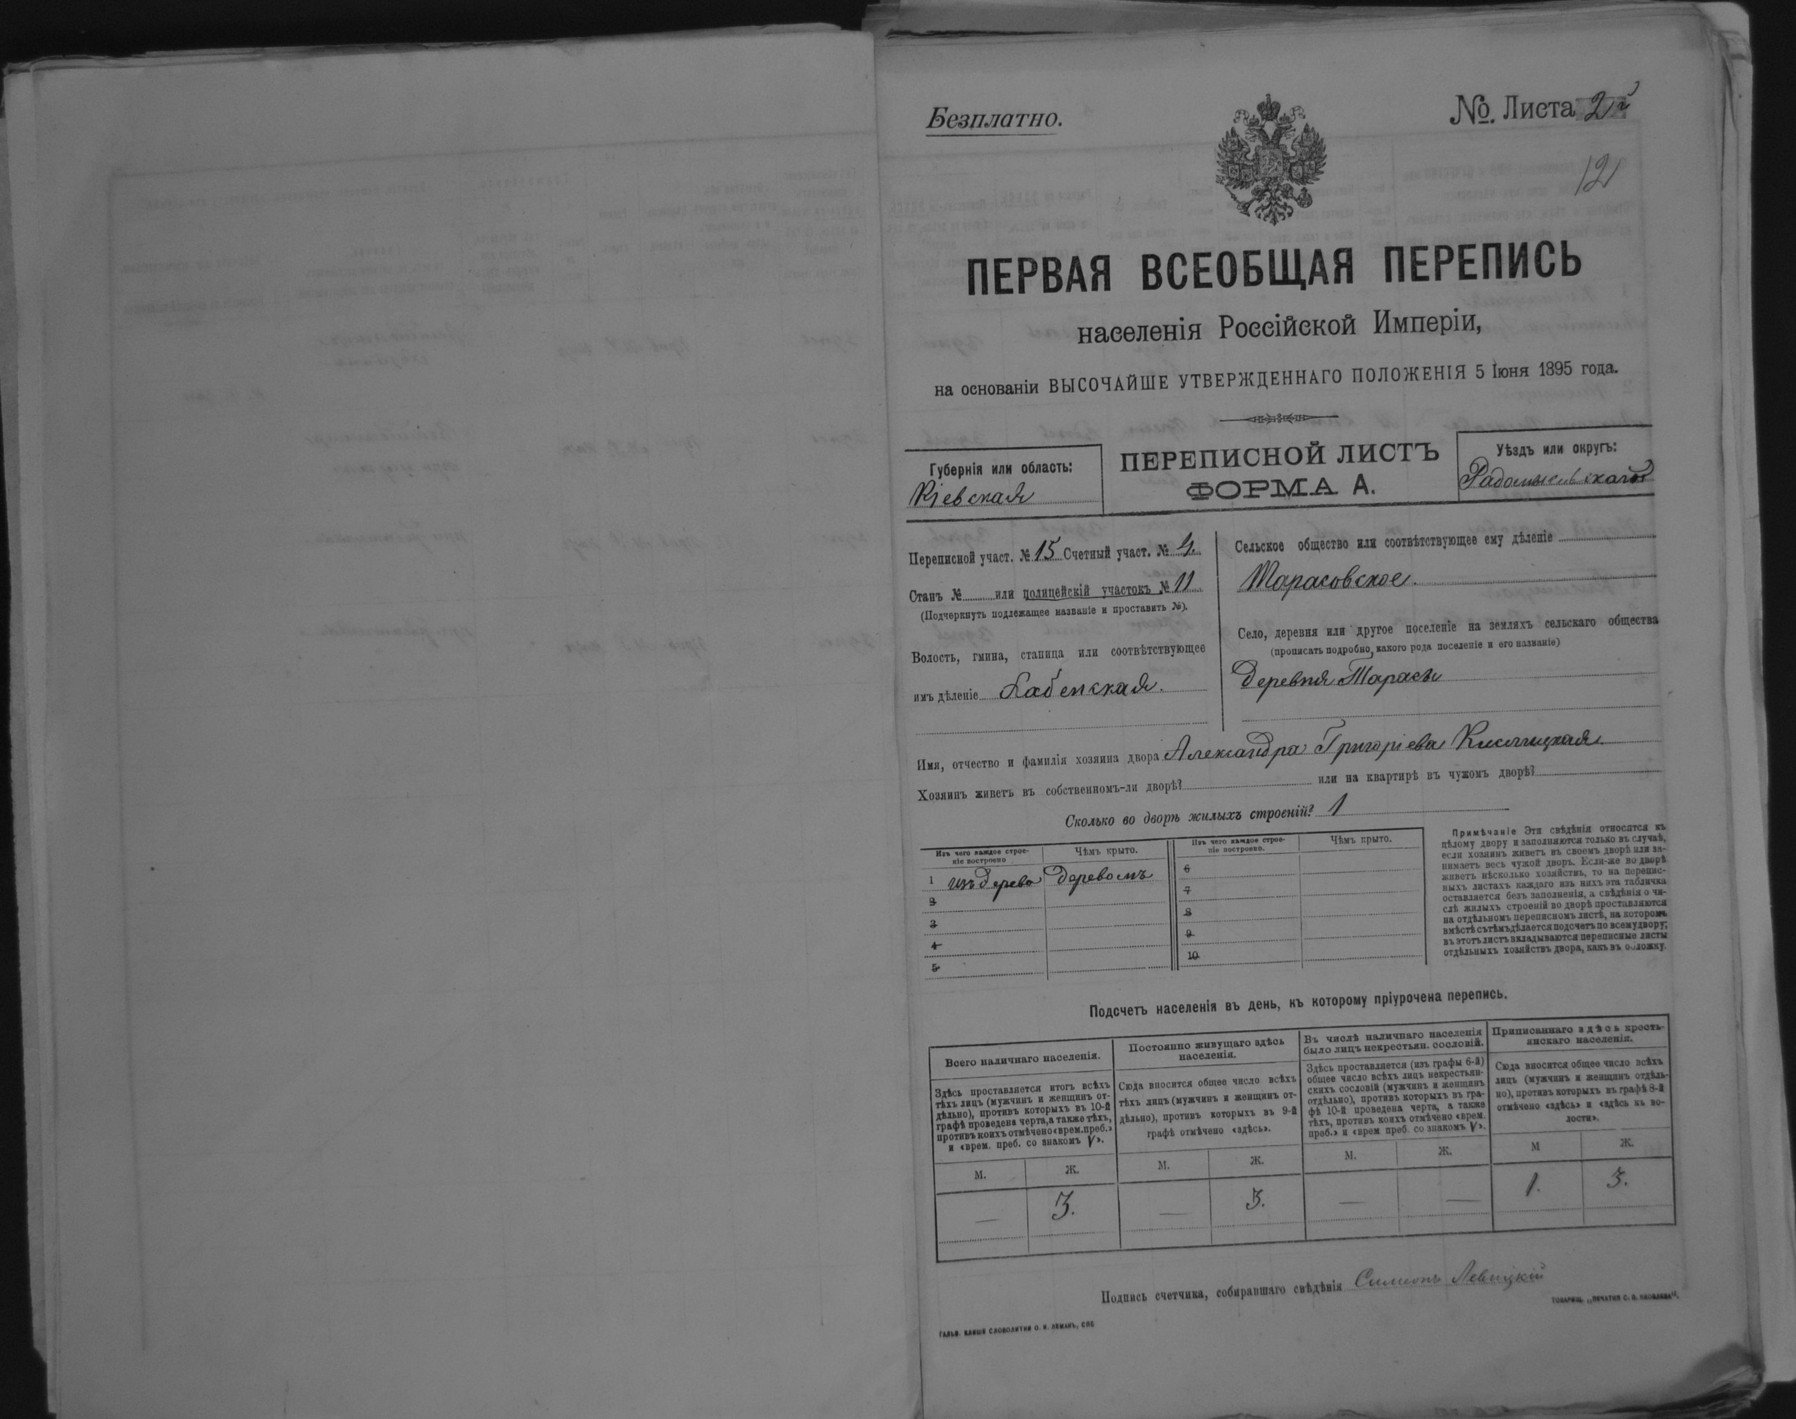 Безплатно.
№ Листа 2й
12
ПЕРВАЯ ВСЕОБЩАЯ ПЕРЕПИСЬ
населенія Россійской Имперіи,
на основаніи ВЫСОЧАЙШЕ УТВЕРЖДЕННАГО ПОЛОЖЕНІЯ 5 Іюня 1895 года.
Губернія или область:
Кіевская
ПЕРЕПИСНОЙ ЛИСТЪ
ФОРМА А.
Уѣздъ или округъ:
Радомысльскаго
Переписной участ. № 15 Счетный участ. № 4.
Станъ № или полицейскій участокъ № 11
(Подчеркнуть подлежащее названіе и проставить №).
Волость, гмина, станица или соотвѣтствующее
имъ дѣленіе Кабенская.
Сельское общество или соотвѣтствующее ему дѣленіе
Тарасовское.
Село, деревня или другое поселеніе на земляхъ сельскаго общества
(прописать подробно, какого рода поселеніе и его названіе)
деревня Тарасы
Имя, отчество и фамилія хозяина двора Александра Григоріева Кислицкая.
Хозяинъ живетъ въ собственномъ-ли дворѣ? или на квартирѣ въ чужомъ дворѣ?
Сколько во дворѣ жилыхъ строеній? 1
Изъ чего каждое строе-
ніе построено
Чѣмъ крыто.
1 изъ дерева деревомъ
2
3
4
5
Изъ чего каждое строе-
ніе построено.
Чѣмъ крыто.
6
7
8
9
10
Примѣчаніе Эти свѣдѣнія относятся къ
цѣлому двору и заполняются только въ случаѣ,
если хозяинъ живетъ въ своемъ дворѣ или за-
нимаетъ весь чужой дворъ. Если-же во дворѣ
живетъ нѣсколько хозяйствъ, то на перепис-
ныхъ листахъ каждаго изъ нихъ эта табличка
оставляется безъ заполненія, а свѣдѣнія о чи-
слѣ жилыхъ строеній во дворѣ проставляются
на отдѣльномъ переписномъ листѣ, на которомъ
вмѣстѣ съ тѣмъ дѣлается подсчетъ по всему двору;
въ этотъ листъ вкладываются переписные листы
отдѣльныхъ хозяйствъ двора, какъ въ обложку.
Подсчетъ населенія въ день, къ которому пріурочена перепись.
Всего наличнаго населенія.
Здѣсь проставляется итогъ всѣхъ
тѣхъ лицъ (мужчинъ и женщинъ от-
дѣльно), противъ которыхъ въ 10-й
графѣ проведена черта, а также тѣхъ,
противъ коихъ отмѣчено «врем. преб.»
и «врем. преб. со знакомъ V».
М. Ж.
— 3.
Постоянно живущаго здѣсь
населенія.
Сюда вносится общее число всѣхъ
тѣхъ лицъ (мужчинъ и женщинъ от-
дѣльно), противъ которыхъ въ 9-й
графѣ отмѣчено «здѣсь».
М. Ж.
— 3.
Въ числѣ наличнаго населенія
было лицъ некрестьян. сословій.
Здѣсь проставляется (изъ графы 6-й)
общее число всѣхъ лицъ некрестьян-
скихъ сословій (мужчинъ и женщинъ
отдѣльно), противъ которыхъ въ гра-
фѣ 10-й проведена черта, а также
тѣхъ, противъ коихъ отмѣчено «врем.
преб.» и «врем преб. со знакомъ V».
М. Ж.
— —
Приписаннаго здѣсь кресть-
янскаго населенія.
Сюда вносится общее число всѣхъ
лицъ (мужчинъ и женщинъ отдѣль-
но), противъ которыхъ въ графѣ 8-й
отмѣчено «здѣсь» и «здѣсь въ во-
лости».
М Ж.
1. 3.
Подпись счетчика, собиравшаго свѣдѣнія Симионъ Левицкій